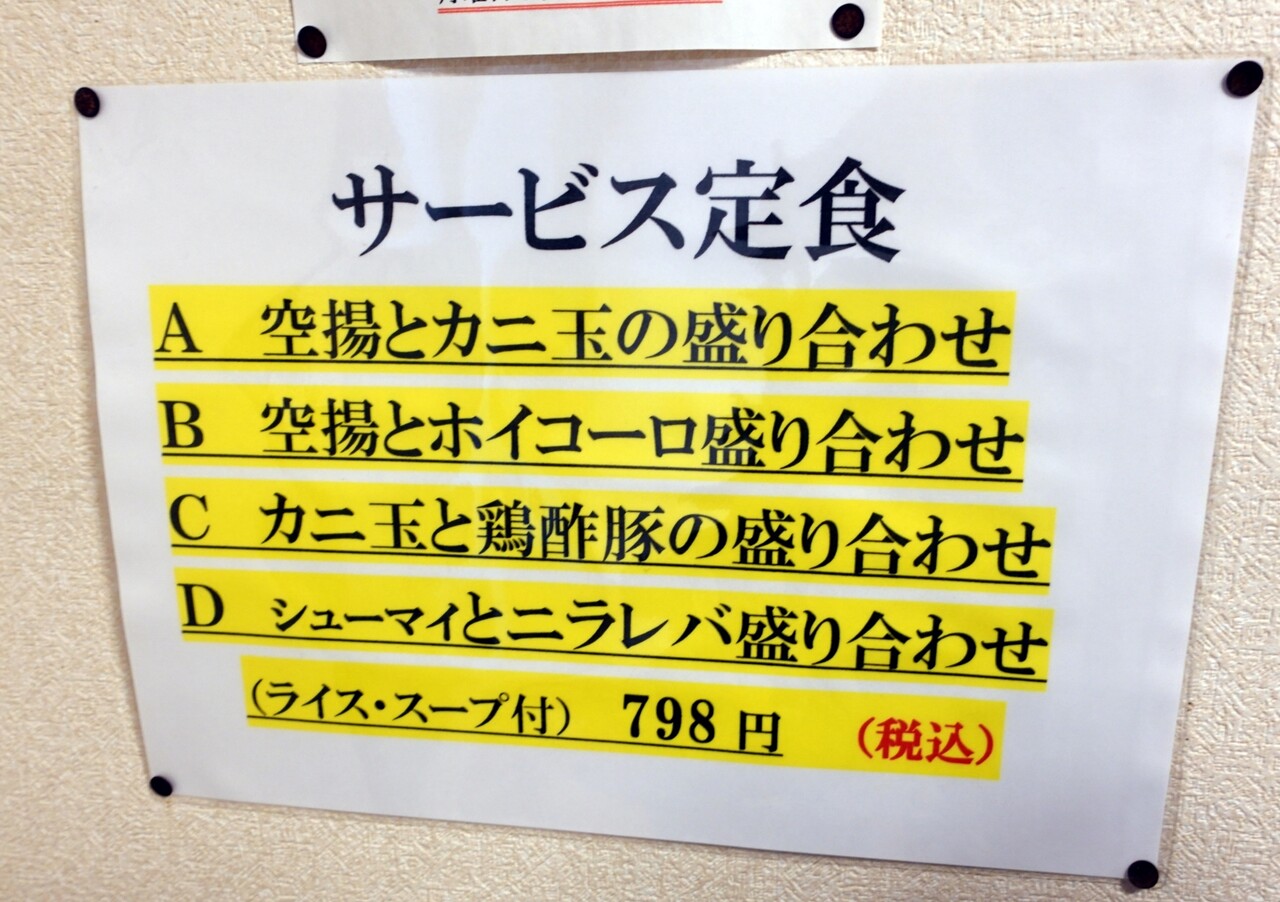 サービス定食
A 空揚とカニ玉の盛り合わせ
B 空揚とホイコーロ盛り合わせ
C カニ玉と鶏酢豚の盛り合わせ
D シューマイとニラレバ盛り合わせ
(ライス・スープ付) 798円 (税込)